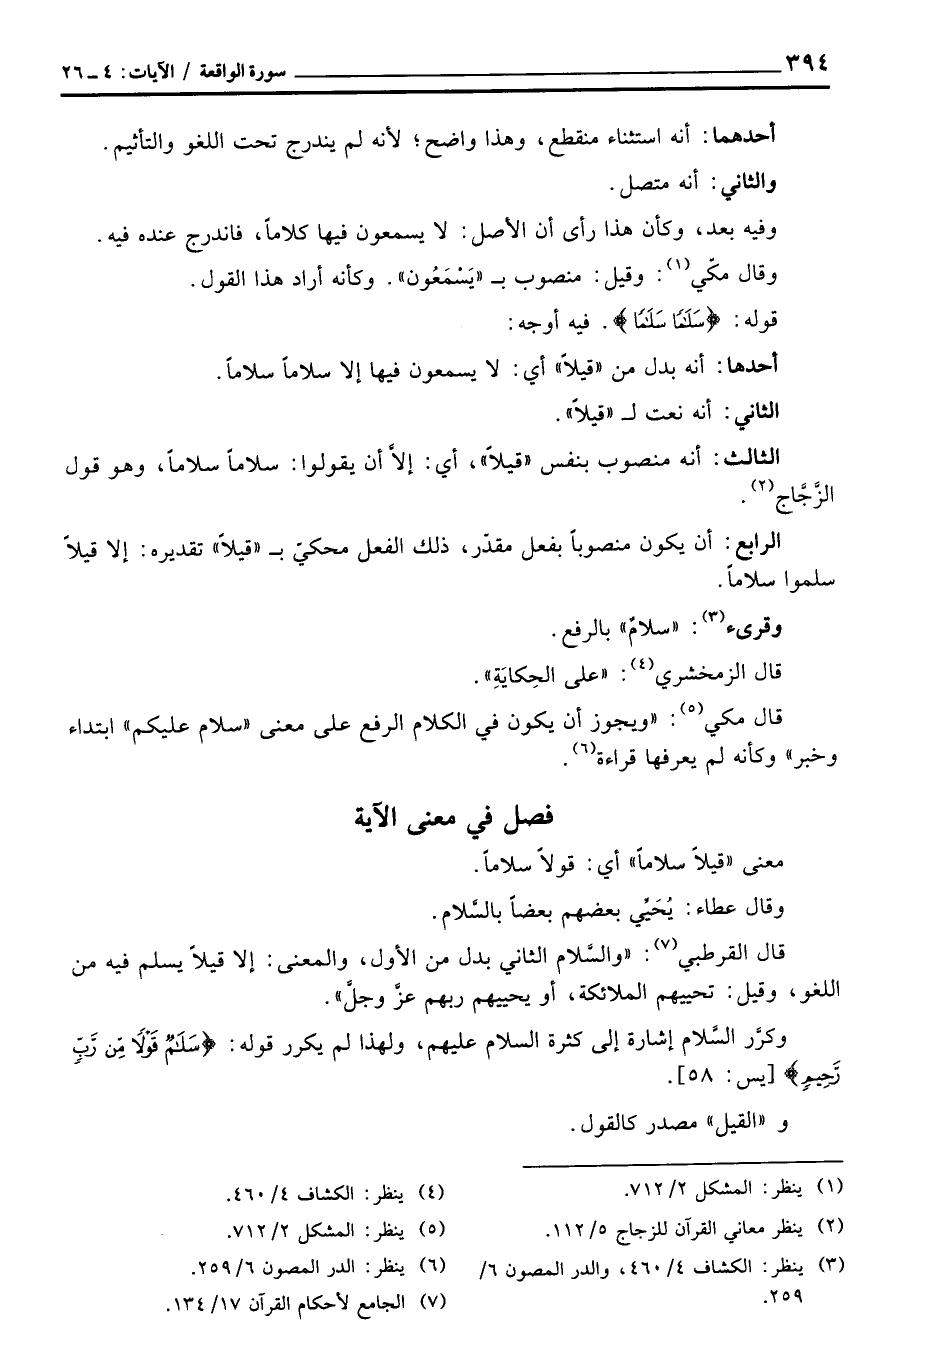 ٣٩٤ سورة الواقعة / الآيات: ٤ ـ ٢٦
أحدهما: أنه استثناء منقطع، وهذا واضح؛ لأنه لم يندرج تحت اللغو والتأثيم.
والثاني: أنه متصل.
وفيه بعد، وكأن هذا رأى أن الأصل: لا يسمعون فيها كلاماً، فاندرج عنده فيه.
وقال مكّي(١): وقيل: منصوب بـ «يَسْمَعُون». وكأنه أراد هذا القول.
قوله: ﴿سَلَٰمًا سَلَٰمًا﴾. فيه أوجه:
أحدها: أنه بدل من «قيلاً» أي: لا يسمعون فيها إلا سلاماً سلاماً.
الثاني: أنه نعت لـ «قيلاً».
الثالث: أنه منصوب بنفس «قيلاً»، أي: إلاَّ أن يقولوا: سلاماً سلاماً، وهو قول
الزَّجَّاج(٢).
الرابع: أن يكون منصوباً بفعل مقدّر، ذلك الفعل محكيّ بـ «قيلاً» تقديره: إلا قيلاً
سلموا سلاماً.
وقرىء(٣): «سلامٌ» بالرفع.
قال الزمخشري(٤): «على الحِكايَةِ».
قال مكي(٥): «ويجوز أن يكون في الكلام الرفع على معنى «سلام عليكم» ابتداء
وخبر» وكأنه لم يعرفها قراءة(٦).
فصل في معنى الآية
معنى «قيلاً سلاماً» أي: قولاً سلاماً.
وقال عطاء: يُحَيِّي بعضهم بعضاً بالسَّلام.
قال القرطبي(٧): «والسَّلام الثاني بدل من الأول، والمعنى: إلا قيلاً يسلم فيه من
اللغو، وقيل: تحييهم الملائكة، أو يحييهم ربهم عزَّ وجلَّ».
وكرَّر السَّلام إشارة إلى كثرة السلام عليهم، ولهذا لم يكرر قوله: ﴿سَلَٰمٌ قَوْلًا مِّن رَّبٍّ
رَّحِيمٍ﴾ [يس: ٥٨].
و «القيل» مصدر كالقول.
(١) ينظر: المشكل ٢/ ٧١٢.
(٢) ينظر معاني القرآن للزجاج ٥/ ١١٢.
(٣) ينظر: الكشاف ٤/ ٤٦٠، والدر المصون ٦/
٢٥٩.
(٤) ينظر: الكشاف ٤/ ٤٦٠.
(٥) ينظر: المشكل ٢/ ٧١٢.
(٦) ينظر: الدر المصون ٦/ ٢٥٩.
(٧) الجامع لأحكام القرآن ١٧/ ١٣٤.